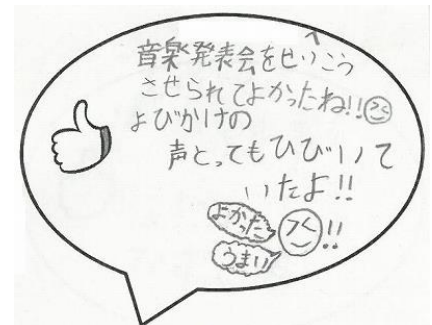 音楽発表会をせいこう
させられてよかったね!!
よびかけの
声とってもひびいて
いたよ!!
よかった
!!
うまい